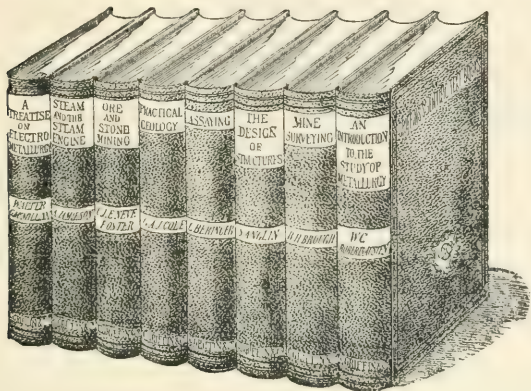 A
TREATISE
ON
ELECTRO
METALLURGY
WALTER
STEAM
AND THE
STEAM
ENGINE
JAMIESON
ORE
AND
STONE
MINING
C. LE NEVE
FOSTER
PRACTICAL
GEOLOGY
G.A.J. COLE
ASSAYING
BERINGER
THE
DESIGN
OF
STRUCTURES
S. ANGLIN
MINE
SURVEYING
B.H. BROUGH
AN
INTRODUCTION
TO THE
STUDY OF
METALLURGY
W.C.
ROBERTS-AUSTEN